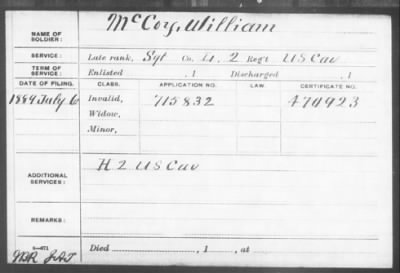 McCoy, William
NAME OF
SOLDIER:
SERVICE: Late rank, Sgt Co. , 2 Reg't US Cav
TERM OF
SERVICE: Enlisted , 1 Discharged , 1
DATE OF FILING. CLASS. APPLICATION NO. LAW. CERTIFICATE NO.
1889 July 6 Invalid, 715832 474923
Widow,
Minor,
H 2 US Cav
ADDITIONAL
SERVICES:
REMARKS:
Died , 1 , at